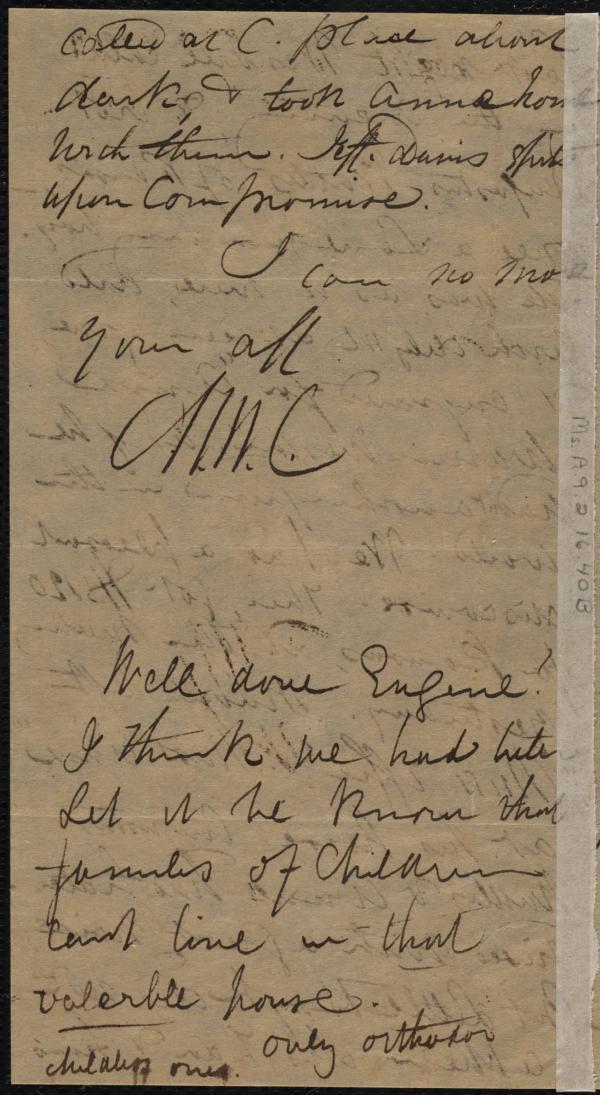 called at C. place about
dark, & took Anne home
with them. Jeff. Davis spits
upon Compromise.
I can no mo
Your aff
A.W.C.
Well done Eugene!
I think we had bette
Let it be known that
families of Children
cant live in that
valerble house.
only orthodox
childless ones.
Ms. A 9.2 16.40B